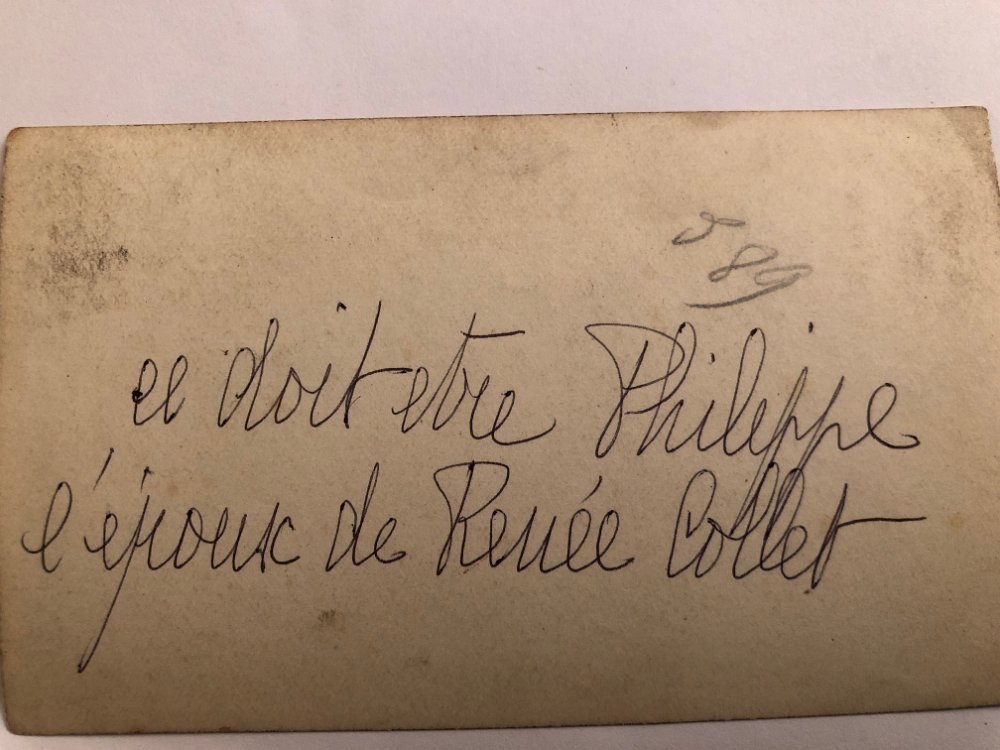 589
ce doit etre Philippe
l'époux de Renée Collet